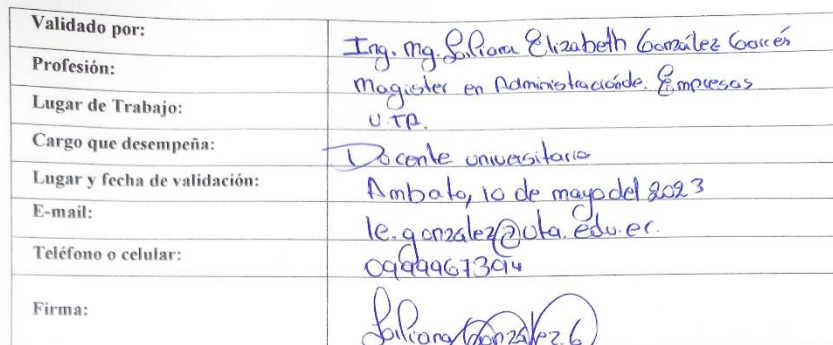 Validado por: Ing. Mg. Liliana Elizabeth González Garcés
Profesión: Magister en Administración de Empresas
Lugar de Trabajo: U.T.A.
Cargo que desempeña: Docente universitario
Lugar y fecha de validación: Ambato, 10 de mayo del 2023
E-mail: le.gonzalez@uta.edu.ec.
Teléfono o celular:
Firma: Liliana González G